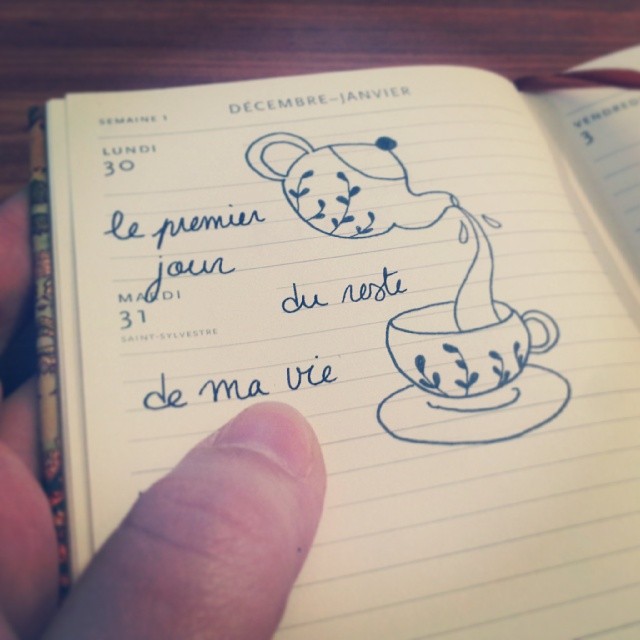 DÉCEMBRE–JANVIER
SEMAINE 1
LUNDI
30
le premier
jour
MARDI
31
SAINT-SYLVESTRE
du reste
de ma vie
VENDREDI
3